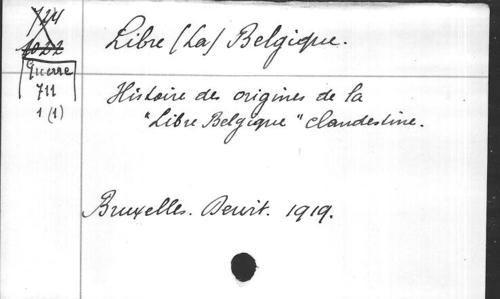 724
1022
Guerre
711
1 (1)
Libre (La) Belgique.
Histoire des origines de la
"Libre Belgique" clandestine.
Bruxelles. Dewit. 1919.